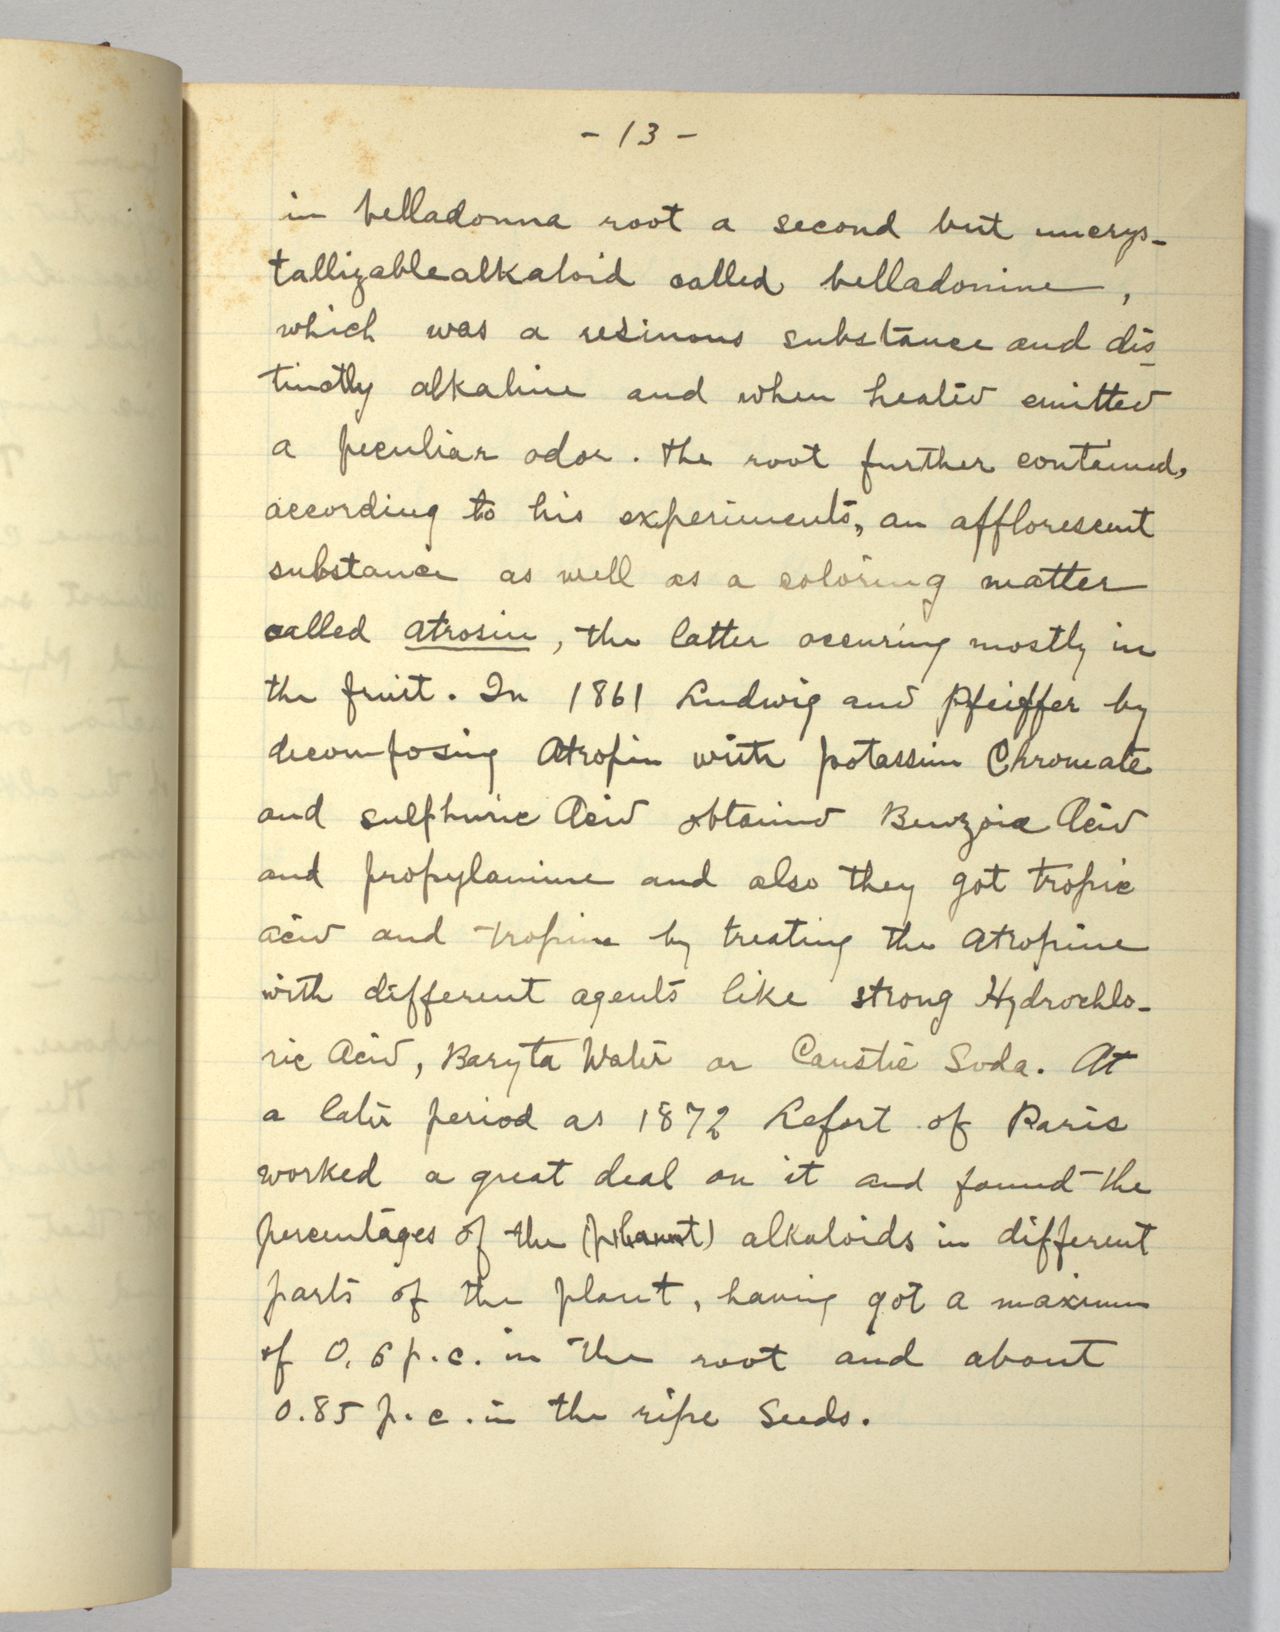 - 13 -
in belladonna root a second but uncrys-
tallizable alkaloid called belladonine ,
which was a resinous substance and dis-
tinctly alkaline and when heated emitted
a peculiar odor. the root further contained,
according to his experiments, an afflorescent
substance as well as a coloring matter
called atrosin, the latter occuring mostly in
the fruit. In 1861 Ludwig and Pfeiffer by
decomposing Atropin with potassium Chromate
and sulphuric Acid obtained Benzoic Acid
and propylamine and also they got tropic
acid and tropine by treating the atropine
with different agents like strong Hydrochlo-
ric Acid, Baryta Water or Caustic Soda. At
a later period as 1872 Lefort of Paris
worked a great deal on it and found the
percentages of the alkaloids in different
parts of the plant, having got a maximum
of 0.6 p.c. in the root and about
0.85 p.c. in the ripe Seeds.